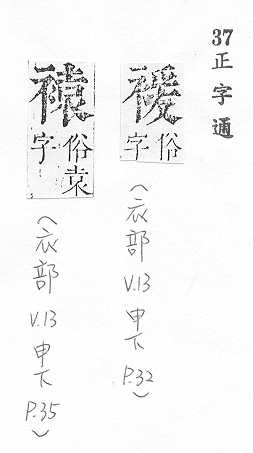 37 正字通
褑俗字
(衣部 V.13 申下 P.32)
褤俗袁字
(衣部 V.13 申下 P.35)